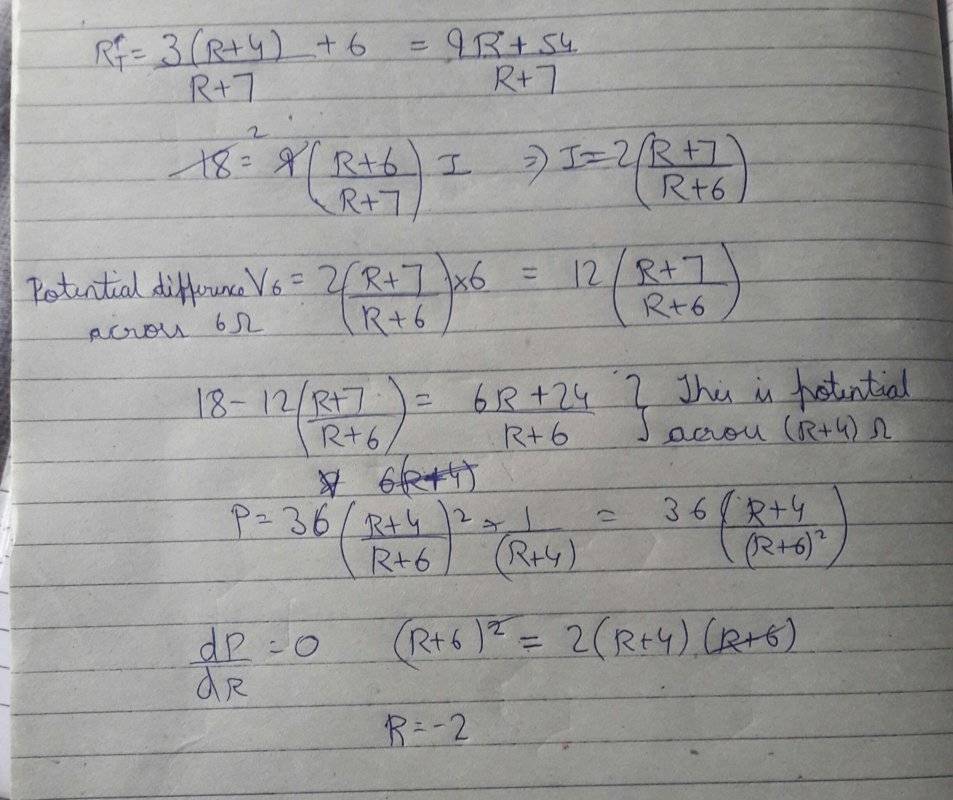 R_T = 3(R+4)/(R+7) + 6 = (9R + 54)/(R+7)
2
18 = 9((R+6)/(R+7)) I ⇒ I = 2((R+7)/(R+6))
Potential difference V6 = 2((R+7)/(R+6)) × 6 = 12((R+7)/(R+6))
across 6Ω
18 - 12((R+7)/(R+6)) = (6R + 24)/(R+6) } This is potential
across (R+4) Ω
6(R+4)
P = 36((R+4)/(R+6))² × 1/(R+4) = 36((R+4)/(R+6)²)
dP/dR = 0 (R+6)² = 2(R+4)(R+6)
R = -2